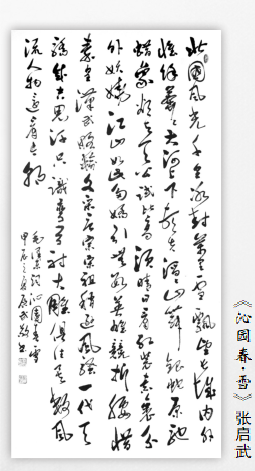 北國风光千里冰封萬里雪飘望长城内外
惟馀莽莽大河上下顿失滔滔山舞银蛇原驰
蜡象欲与天公试比高须晴日看红装素裹分
外妖娆江山如此多娇引无数英雄竞折腰惜
秦皇汉武略输文采唐宗宋祖稍逊风骚一代天
骄成吉思汗只识弯弓射大雕俱往矣数风
流人物还看今朝
毛泽东词沁园春雪
《沁园春·雪》 张启武